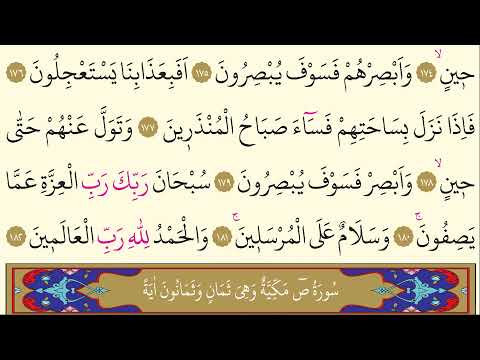 حٖينٍۙ ﴿١٧٤﴾ وَاَبْصِرْهُمْ فَسَوْفَ يُبْصِرُونَ ﴿١٧٥﴾ اَفَبِعَذَابِنَا يَسْتَعْجِلُونَ ﴿١٧٦﴾
فَاِذَا نَزَلَ بِسَاحَتِهِمْ فَسَٓاءَ صَبَاحُ الْمُنْذَرٖينَ ﴿١٧٧﴾ وَتَوَلَّ عَنْهُمْ حَتّٰى
حٖينٍۙ ﴿١٧٨﴾ وَاَبْصِرْ فَسَوْفَ يُبْصِرُونَ ﴿١٧٩﴾ سُبْحَانَ رَبِّكَ رَبِّ الْعِزَّةِ عَمَّا
يَصِفُونَۚ ﴿١٨٠﴾ وَسَلَامٌ عَلَى الْمُرْسَلٖينَۚ ﴿١٨١﴾ وَالْحَمْدُ لِلّٰهِ رَبِّ الْعَالَمٖينَ ﴿١٨٢﴾
سُورَةُ صٓ مَكِّيَّةٌ وَهِىَ ثَمَانٍ وَثَمَانُونَ اٰيَةً